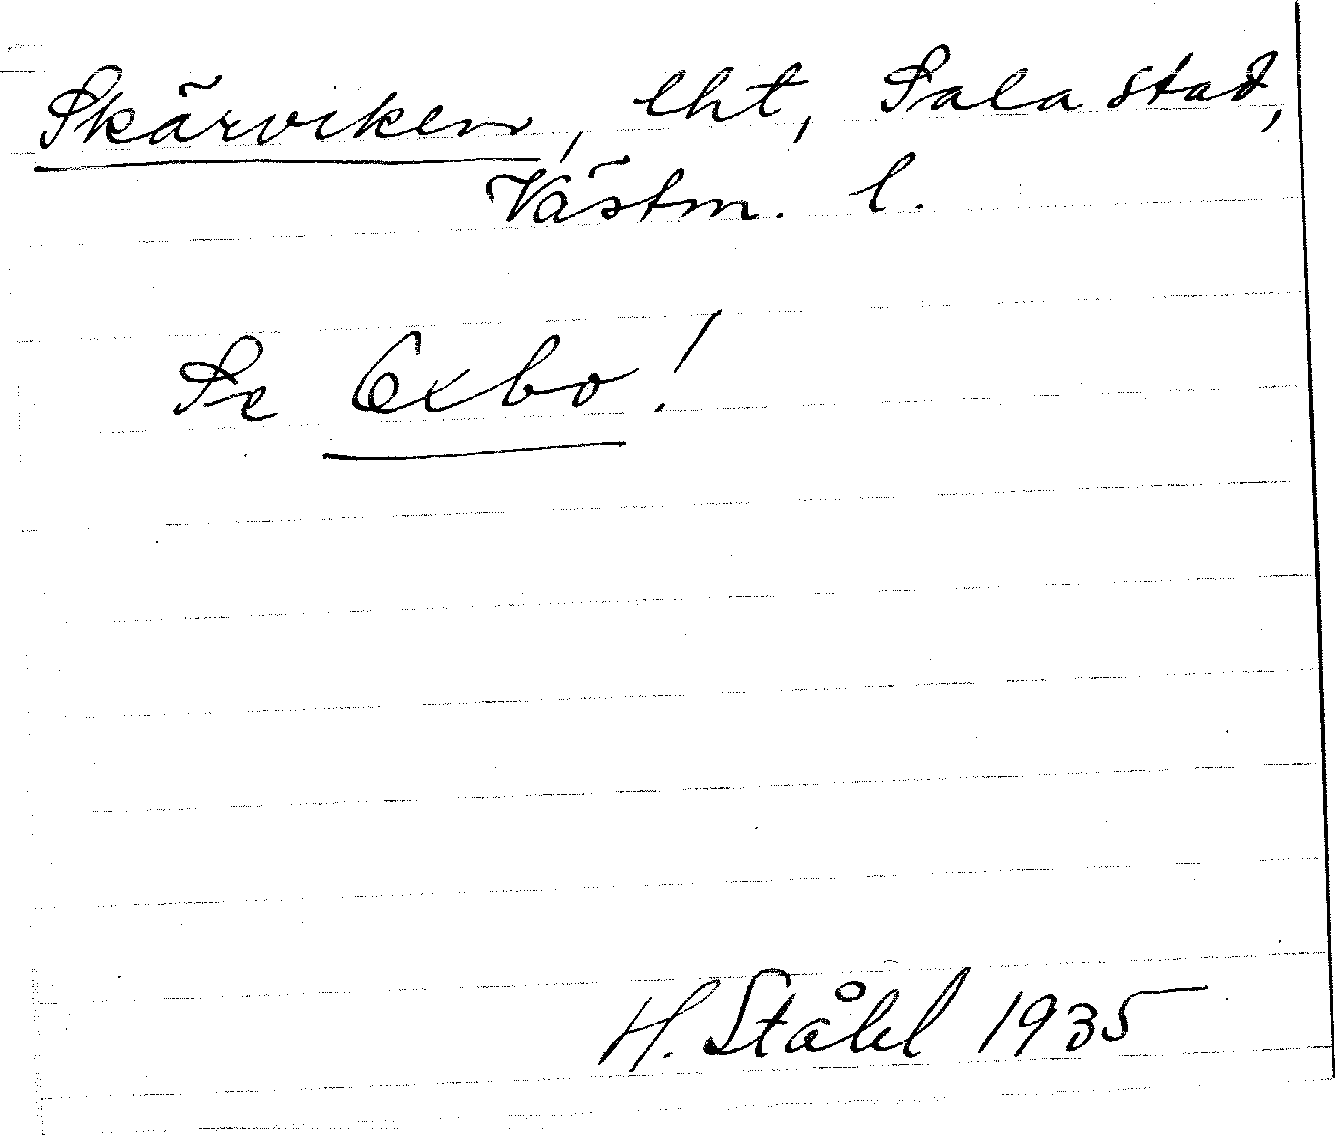 Skärviken, lht, Sala stad,
Västm. l.
Se Oxbo!
H. Ståhl 1935